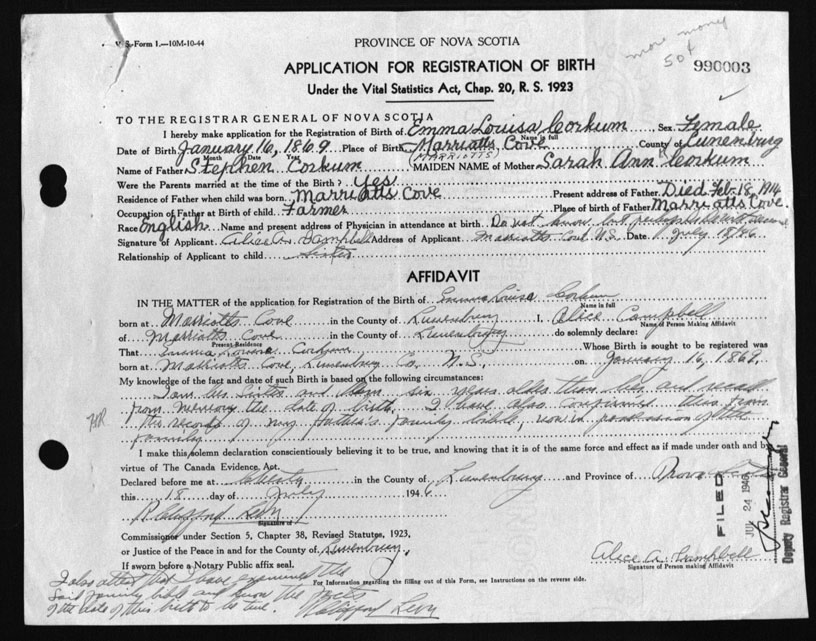 V. S.-Form 1.—10M-10-44
more money
50¢
PROVINCE OF NOVA SCOTIA
990003
APPLICATION FOR REGISTRATION OF BIRTH
Under the Vital Statistics Act, Chap. 20, R. S. 1923
TO THE REGISTRAR GENERAL OF NOVA SCOTIA
I hereby make application for the Registration of Birth of Emma Louisa Corkum, Sex Female
Name in full
Date of Birth January 16, 1869 Place of Birth Marriatts Cove County of Lunenburg
Month Date Year (MARRIOTTS)
Name of Father Stephen Corkum MAIDEN NAME of Mother Sarah Ann Corkum
Were the Parents married at the time of the Birth? Yes
Residence of Father when child was born Marriatts Cove Present address of Father Died Feb 18, 1914
Occupation of Father at Birth of child Farmer Place of birth of Father Marriatts Cove.
Race English Name and present address of Physician in attendance at birth Do not know but perhaps
Signature of Applicant Alice A. Campbell Address of Applicant Marriotts Cove N.S. Date July 18/46
Relationship of Applicant to child Sister
AFFIDAVIT
IN THE MATTER of the application for Registration of the Birth of Emma Louisa Corkum
Name in full
born at Marriotts Cove in the County of Lunenburg I, Alice Campbell
Name of Person Making Affidavit
of Marriotts Cove in the County of Lunenburg do solemnly declare:
Present Residence
That Emma Louisa Corkum Whose Birth is sought to be registered was
born at Marriotts Cove, Lunenburg Co., N.S., on January 16, 1869.
My knowledge of the fact and date of such Birth is based on the following circumstances:
I am her sister and am six years older than she and recall
from memory the date of birth. I have also confirmed this from
the records of my father's family bible, now in possession of the
family
I make this solemn declaration conscientiously believing it to be true, and knowing that it is of the same force and effect as if made under oath and by
virtue of The Canada Evidence Act.
Declared before me at in the County of Lunenburg and Province of Nova Scotia
this 18 day of July 1946
R Clifford Levy
Signature of
Commissioner under Section 5, Chapter 38, Revised Statutes, 1923,
or Justice of the Peace in and for the County of Lunenburg.
If sworn before a Notary Public affix seal.
Alice A. Campbell
Signature of Person making Affidavit
For Information regarding the filling out of this Form, see Instructions on the reverse side.
I also attest that I have examined the
said family bible and know the facts
of the date of this birth to be true. R Clifford Levy
FILED
JUL 24 1946
Deputy Registrar General